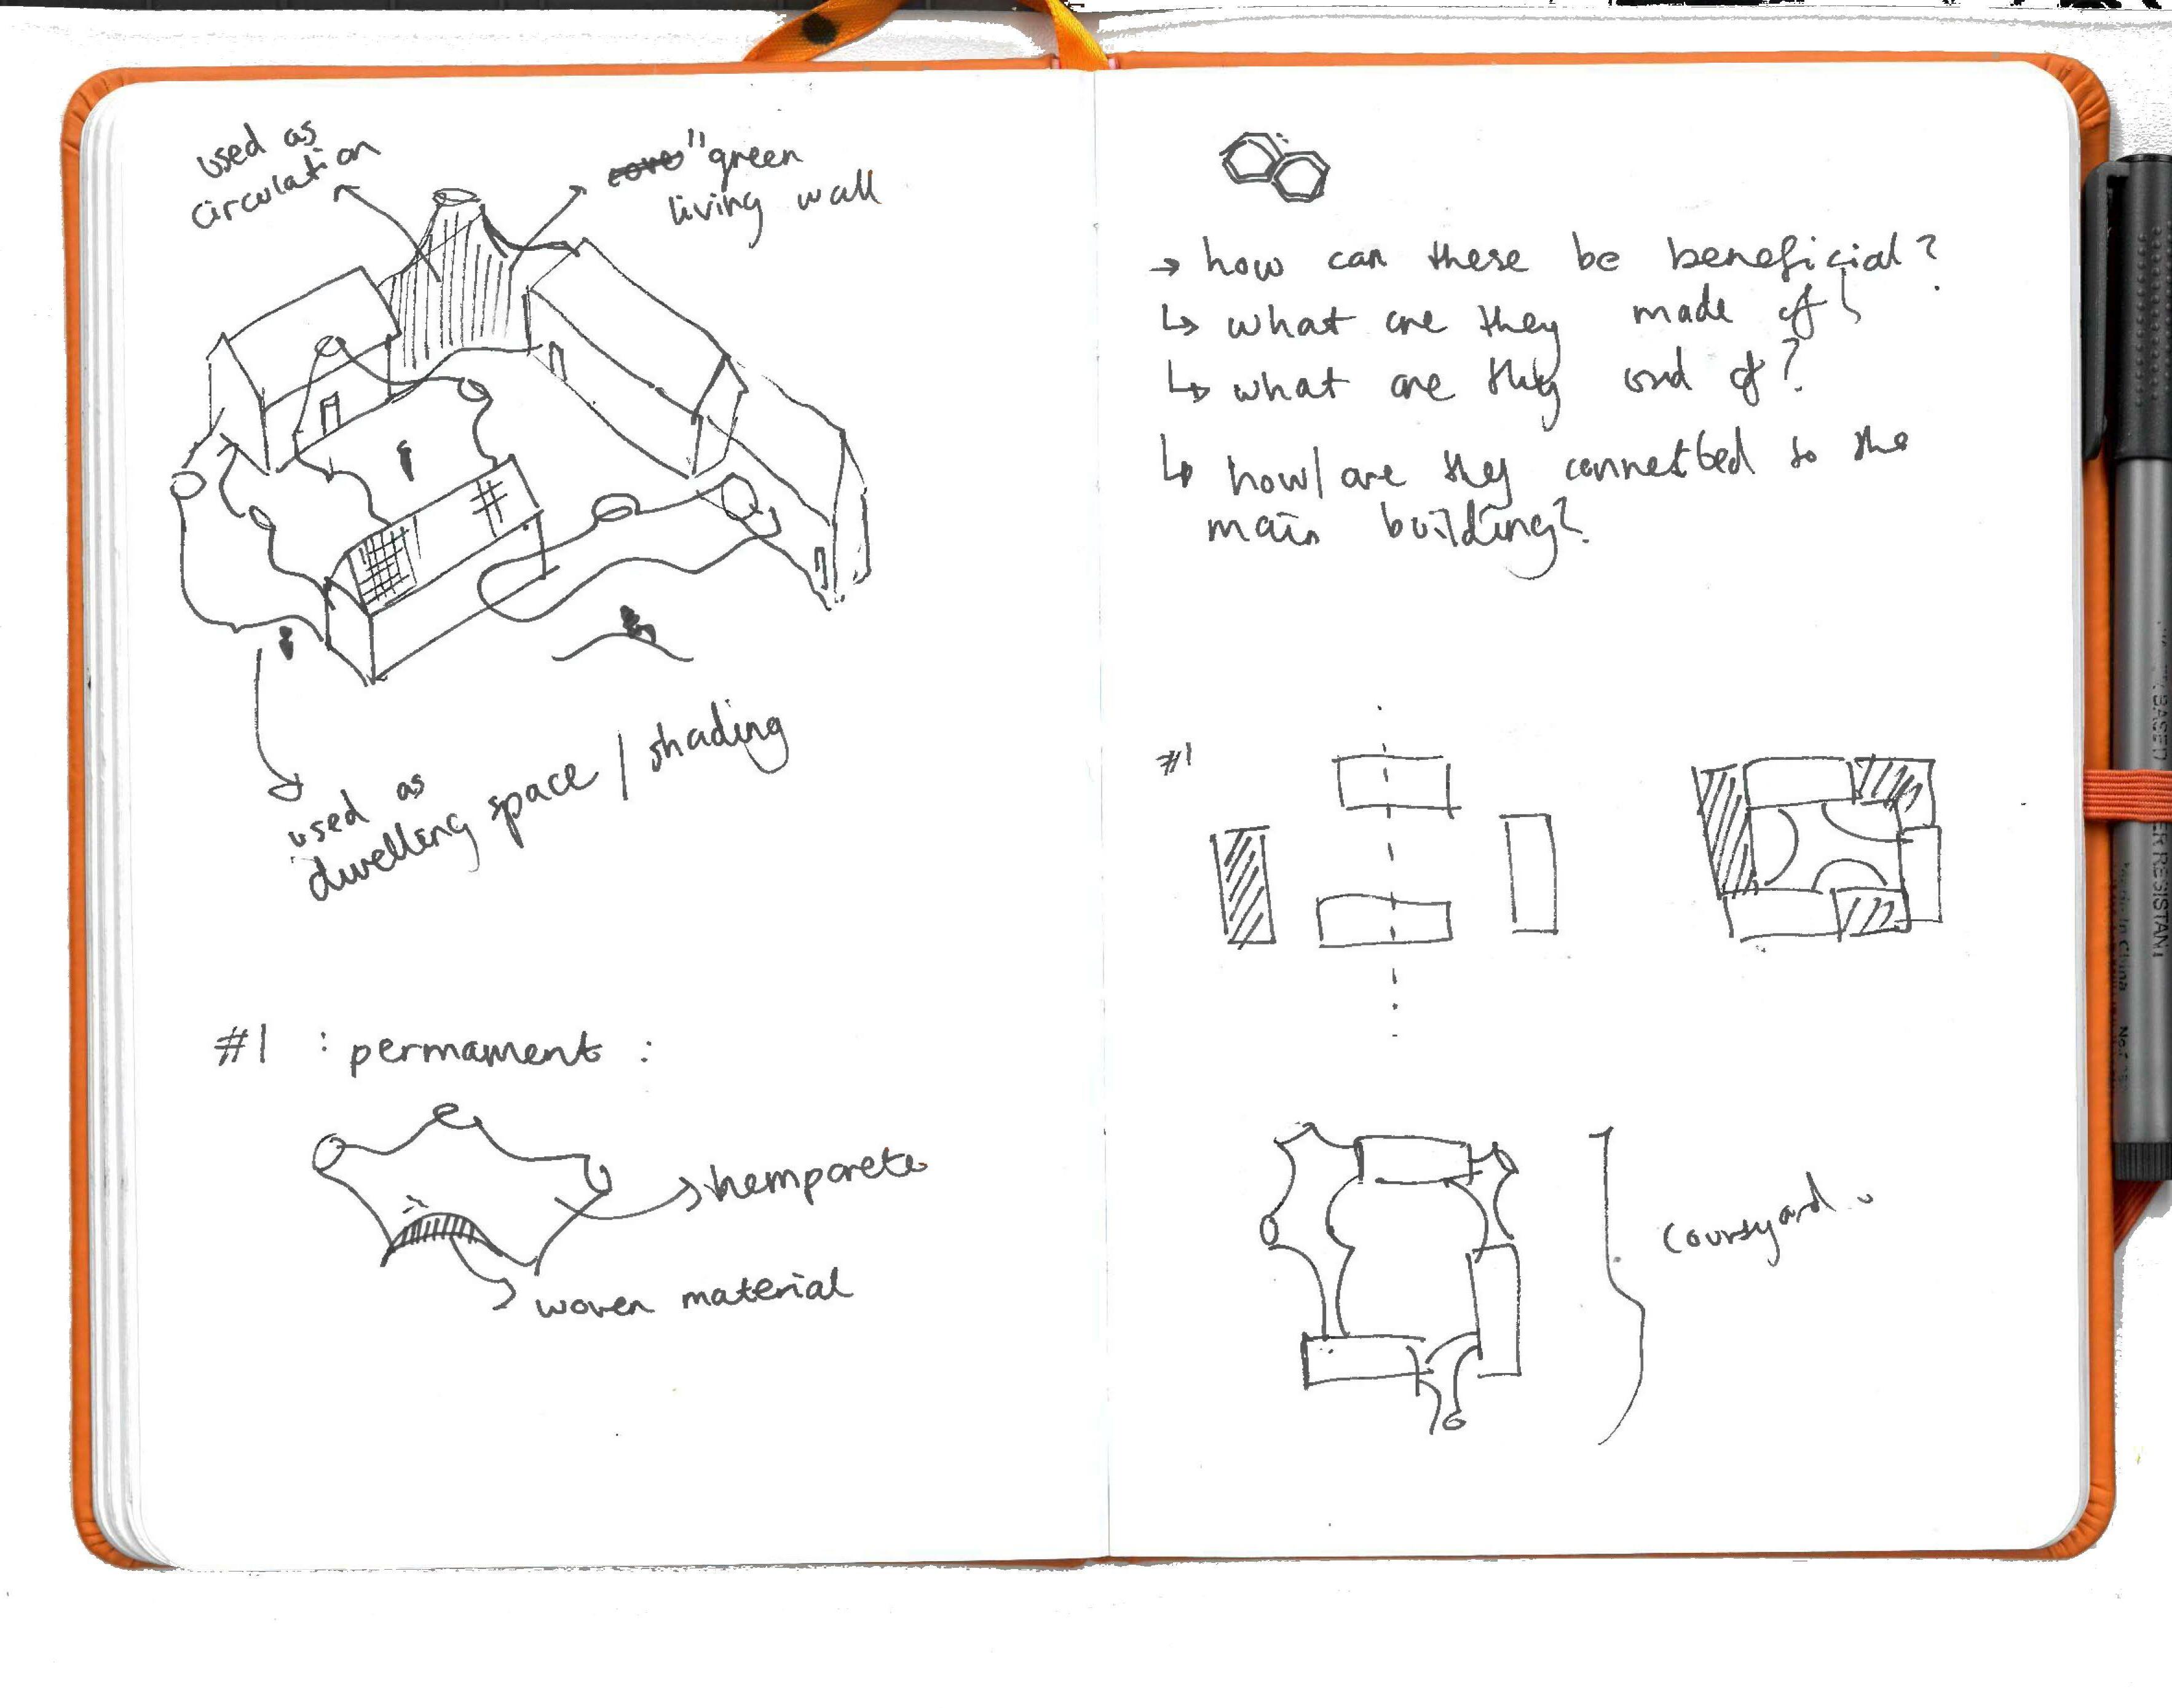 used as
circulation
"green
living wall
used as
dwelling space / shading
#1 : permament :
hempcrete
woven material
→ how can these be beneficial?
↳ what are they made of?
↳ what are they of?
↳ how/are they connected to the
main building?
#1
#1
courtyard
BASED
ER RESISTANT